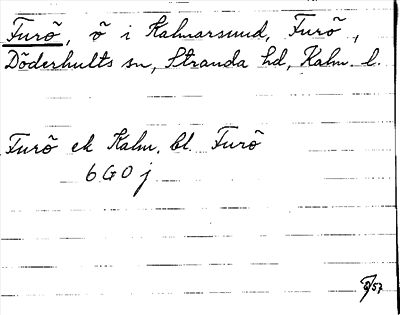 Furö, ö i Kalmarsund, Furö,
Döderhults sn, Stranda hd, Kalm. l.
Furö ek Kalm. bl. Furö
6 G 0 j
/57